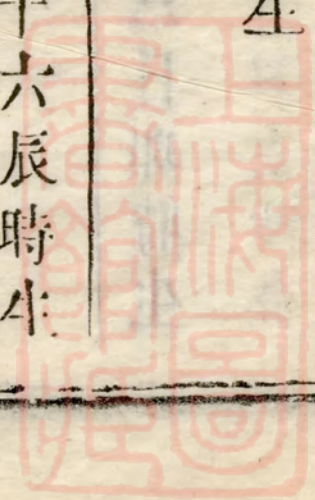 生
十六辰時生
上海圖
書館藏